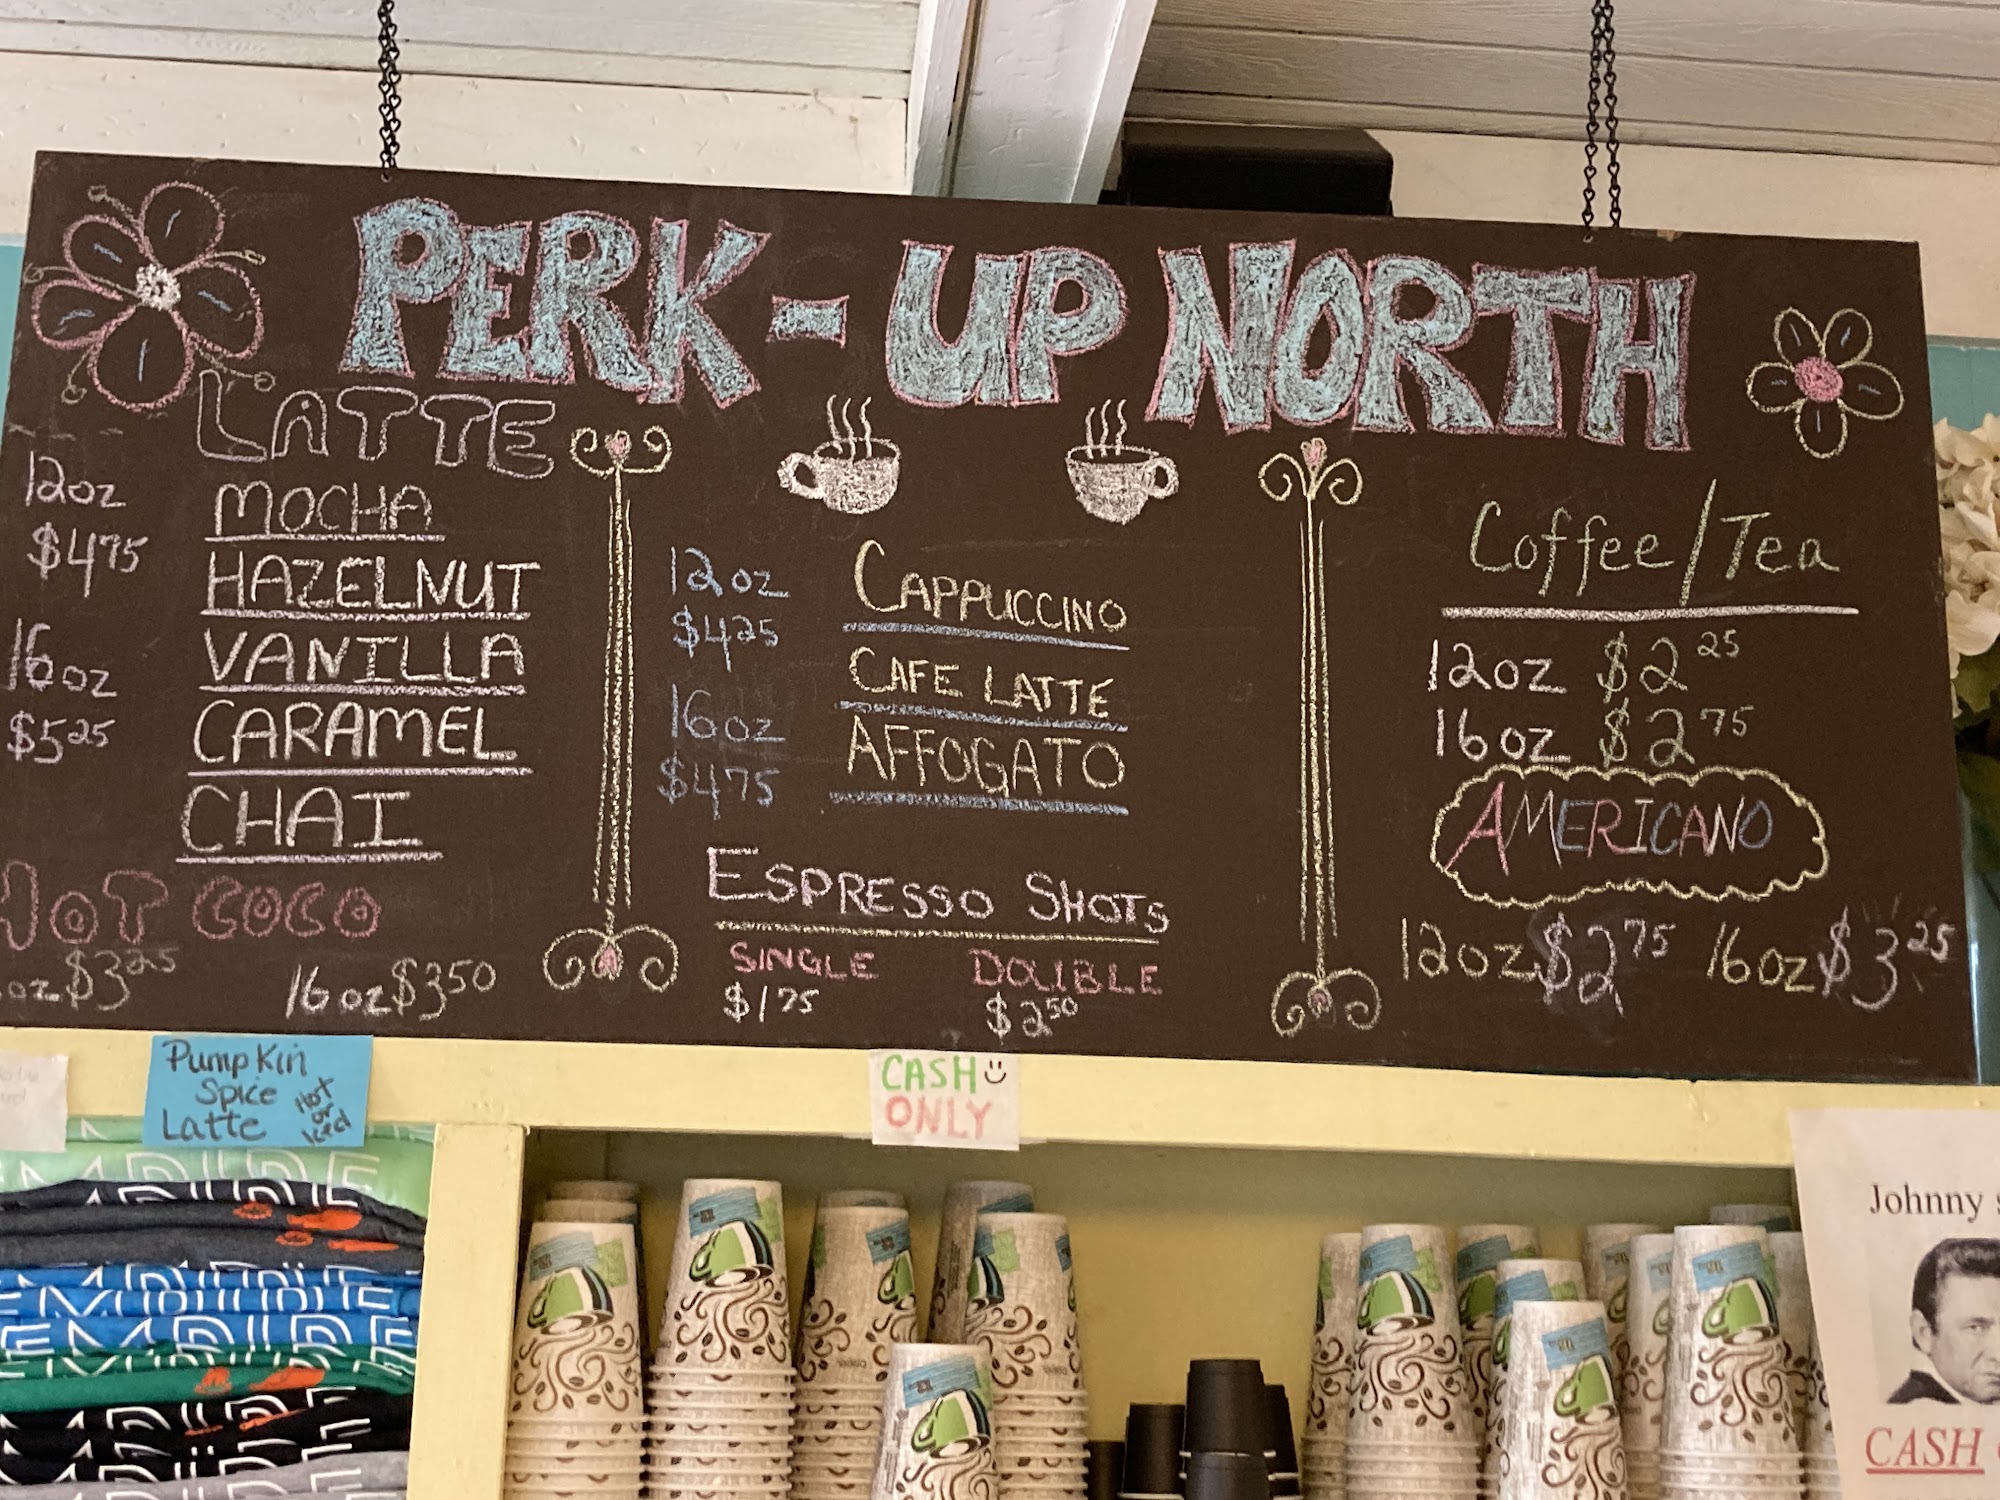 PERK-UP NORTH
LATTE
12oz
$4.75
16oz
$5.25
MOCHA
HAZELNUT
VANILLA
CARAMEL
CHAI
HOT COCO
oz $3.25
16oz $3.50
12oz
$4.25
16oz
$4.75
CAPPUCCINO
CAFE LATTE
AFFOGATO
ESPRESSO SHOTS
SINGLE
$1.75
DOUBLE
$2.50
Coffee/Tea
12oz $2.25
16oz $2.75
AMERICANO
12oz $2.75 16oz $3.25
Pumpkin
Spice
Latte
Hot
or
Iced
CASH
ONLY
EMPIRE
EMPIRE
EMPIRE
Johnny
CASH